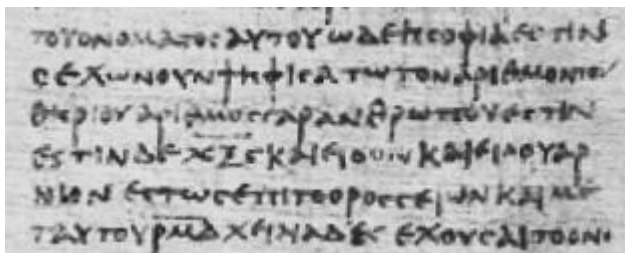 ΤΟΥΟΝΟΜΑΤΟϹΑΥΤΟΥΩΔΕΗϹΟΦΙΑΕϹΤΙΝ
ΟΕΧΩΝΟΥΝΨΗΦΙϹΑΤΩΤΟΝΑΡΙΘΜΟΝΤΟΥ
ΘΗΡΙΟΥΑΡΙΘΜΟϹΓΑΡΑΝΘΡΩΠΟΥΕϹΤΙΝ
ΕϹΤΙΝΔΕΧΞϚΚΑΙΕΙΔΟΝΚΑΙΕΙΔΟΥΑΡ
ΝΙΟΝΕϹΤΩϹΕΠΙΤΟΟΡΟϹϹΕΙΩΝΚΑΙΜΕ
ΤΑΥΤΟΥΡΜΔΧΕΙΛΙΑΔΕϹΕΧΟΥϹΑΙΤΟΟΝΟ